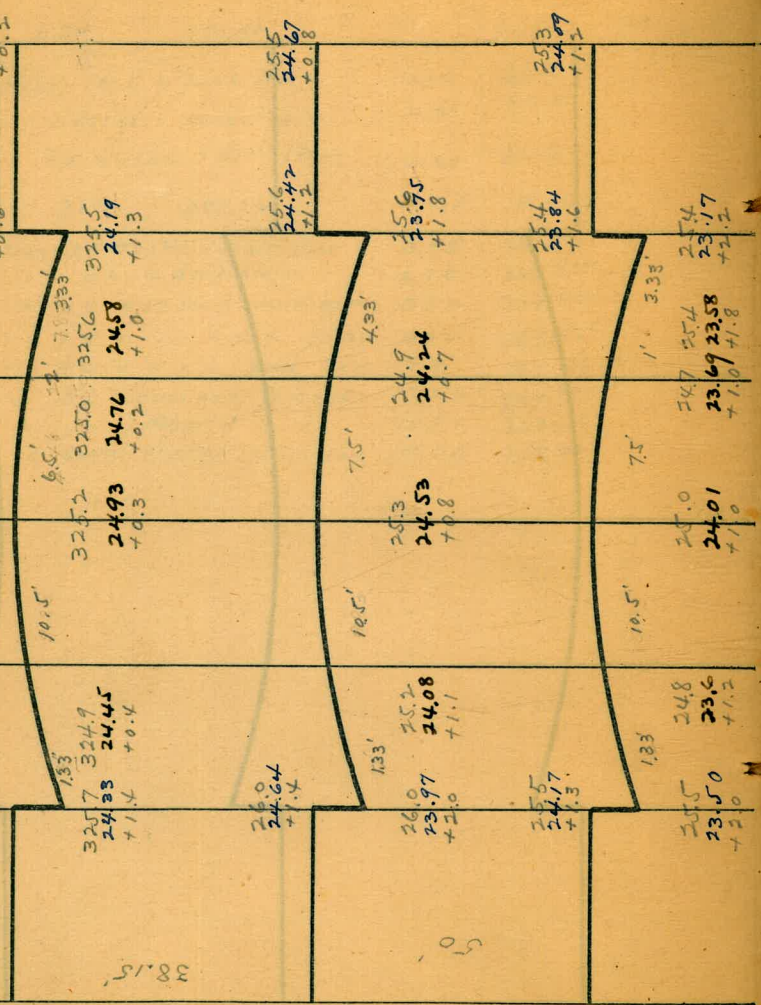 +0.2
25.5
24.67
+0.8
25.3
24.09
+1.2
325.5
24.19
+1.3
25.6
24.42
+1.2
25.6
23.75
+1.8
25.4
23.84
+1.6
25.4
23.17
+2.2
3.33'
325.6
24.58
+1.0
4.33'
24.9
24.24
+0.7
3.33'
1'
25.4
23.58
+1.8
6.5'
325.0
24.76
+0.2
7.5'
7.5'
24.7
23.69
+1.0
325.2
24.93
+0.3
25.3
24.53
+0.8
25.0
24.01
+1.0
10.5'
10.5'
10.5'
1.33'
324.9
24.45
+0.4
1.33'
25.2
24.08
+1.1
1.33'
24.8
23.6
+1.2
325.7
24.33
+1.4
26.0
24.64
+1.4
26.0
23.97
+2.0
25.5
24.17
+1.3
25.5
23.50
+2.0
38.15'